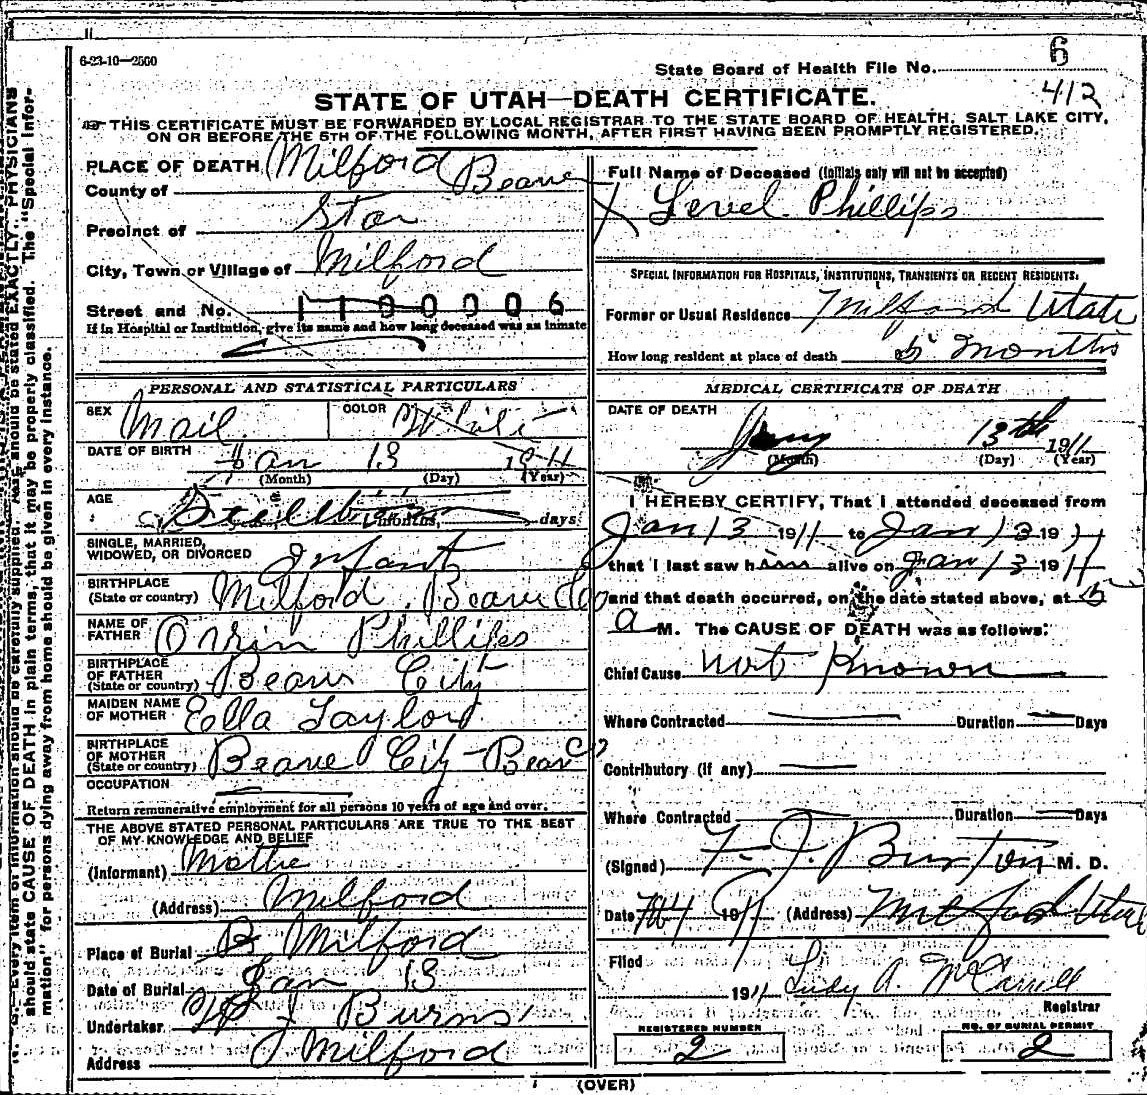 6-23-10—2500
6
State Board of Health File No.
412
STATE OF UTAH—DEATH CERTIFICATE.
THIS CERTIFICATE MUST BE FORWARDED BY LOCAL REGISTRAR TO THE STATE BOARD OF HEALTH, SALT LAKE CITY,
ON OR BEFORE THE 5TH OF THE FOLLOWING MONTH, AFTER FIRST HAVING BEEN PROMPTLY REGISTERED.
PLACE OF DEATH Milford
County of Beaver
Precinct of Star
City, Town or Village of Milford
Street and No. 1100006
If in Hospital or Institution, give its name and how long deceased was an inmate
PERSONAL AND STATISTICAL PARTICULARS
SEX Mail COLOR White
DATE OF BIRTH Jan 13 1911
(Month) (Day) (Year)
AGE Stillborn months, days
SINGLE, MARRIED,
WIDOWED, OR DIVORCED Infant
BIRTHPLACE
(State or country) Milford, Beaver Co
NAME OF
FATHER Orvin Phillips
BIRTHPLACE
OF FATHER
(State or country) Beaver City
MAIDEN NAME
OF MOTHER Ella Taylor
BIRTHPLACE
OF MOTHER
(State or country) Beaver City Beav Co
OCCUPATION
Return remunerative employment for all persons 10 years of age and over.
THE ABOVE STATED PERSONAL PARTICULARS ARE TRUE TO THE BEST
OF MY KNOWLEDGE AND BELIEF
(Informant) Mother
(Address) Milford
Place of Burial Milford
Date of Burial Jan 13
Undertaker J Burns
Address Milford
Full Name of Deceased (Initials only will not be accepted)
X Level Phillips
SPECIAL INFORMATION FOR HOSPITALS, INSTITUTIONS, TRANSIENTS OR RECENT RESIDENTS:
Former or Usual Residence Milford Utah
How long resident at place of death months
MEDICAL CERTIFICATE OF DEATH
DATE OF DEATH
13th 1911
(Month) (Day) (Year)
I HEREBY CERTIFY, That I attended deceased from
Jan 13 1911 to Jan 13 191
that I last saw him alive on Jan 13 1911
and that death occurred, on the date stated above, at 5
a M. The CAUSE OF DEATH was as follows:
Chief Cause not Known
Where Contracted Duration Days
Contributory (if any)
Where Contracted Duration Days
(Signed) F. J. Burton M. D.
Date 1911 (Address) Milford Utah
Filed
1911 A. McCarrell
Registrar
REGISTERED NUMBER
2
NO. OF BURIAL PERMIT
2
(OVER)
Every item of information should be carefully supplied. AGE should be stated EXACTLY. PHYSICIANS
should state CAUSE OF DEATH in plain terms, that it may be properly classified. The "Special Infor-
mation" for persons dying away from home should be given in every instance.